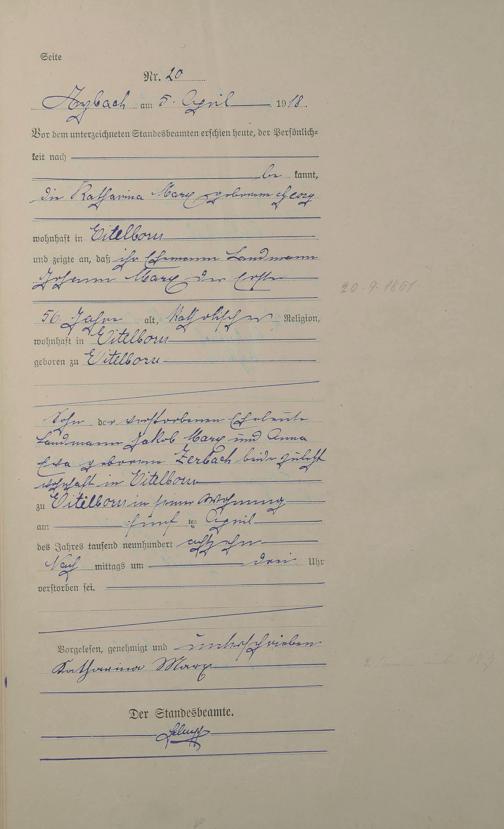 Seite
Nr. 20
Arzbach am 5. April 1918.
Vor dem unterzeichneten Standesbeamten erschien heute, der Persönlich-
keit nach
be kannt,
die Katharina Marx geborene Georg
wohnhaft in Eitelborn
und zeigte an, daß ihr Ehemann Landmann
Johann Marx der Erste
20-9-1861
56 Jahre alt, Katholischer Religion,
wohnhaft in Eitelborn
geboren zu Eitelborn
Sohn der verstorbenen Eheleute
Landmann Jakob Marx und Anna
Eva geborene Zerbach beide zuletzt
wohnhaft in Eitelborn
zu Eitelborn in seiner Wohnung
am fünf ten April
des Jahres tausend neunhundert achtzehn
Nach mittags um drei Uhr
verstorben sei.
Vorgelesen, genehmigt und unterschrieben
Katharina Marx
Der Standesbeamte.